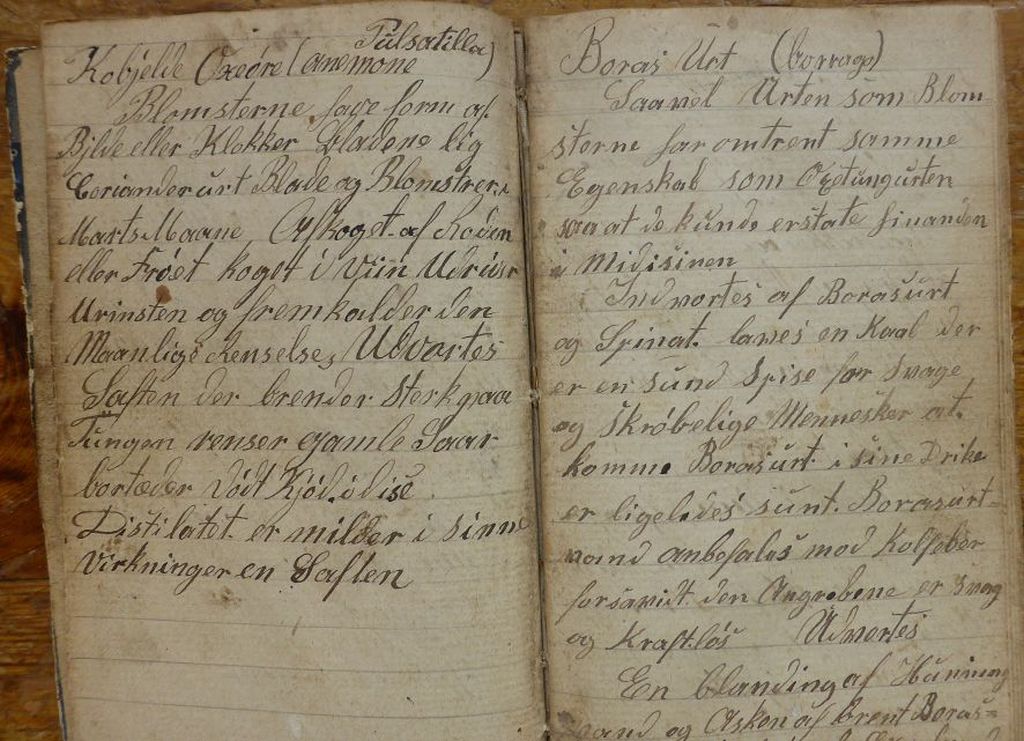 Pulsatilla)
Kobjelde Oxeöre (anemone
Blomsterne have form af
Bjlde eller Klokker bladene lig
Corianderurt Blade og Blomstrer i
Marts Maane Afkoget af Roden
eller Fröet koget i Viin Udriver
Urinsten og fremkalder den
Maanlige Renselse, Udvortes
Saften der brender sterk paa
Tungen renser gamle Saar
bortæder dödt Kjöd i dise
Distilatet er milder i sinne
Virkninger en Saften
Boras Urt (borrago)
Saavel Urten som Blom
sterne har omtrent samme
Egenskab som Oxetungurten
saa at de kunde erstate hinanden
i Midisinen
Indvortes af Borasurt
og Spinat laves en Kaal der
er en sund Spise for Svage
og Skröbelige Mennesker at
komme Borasurt i sine Drike
er ligeledes sunt. Borasurt-
vand anbefales mod Kolfeber
forsavidt den Angrebene er svag
og Kraftlös Udvortes
En blanding af Huning
vand og Asken af brent Boras=